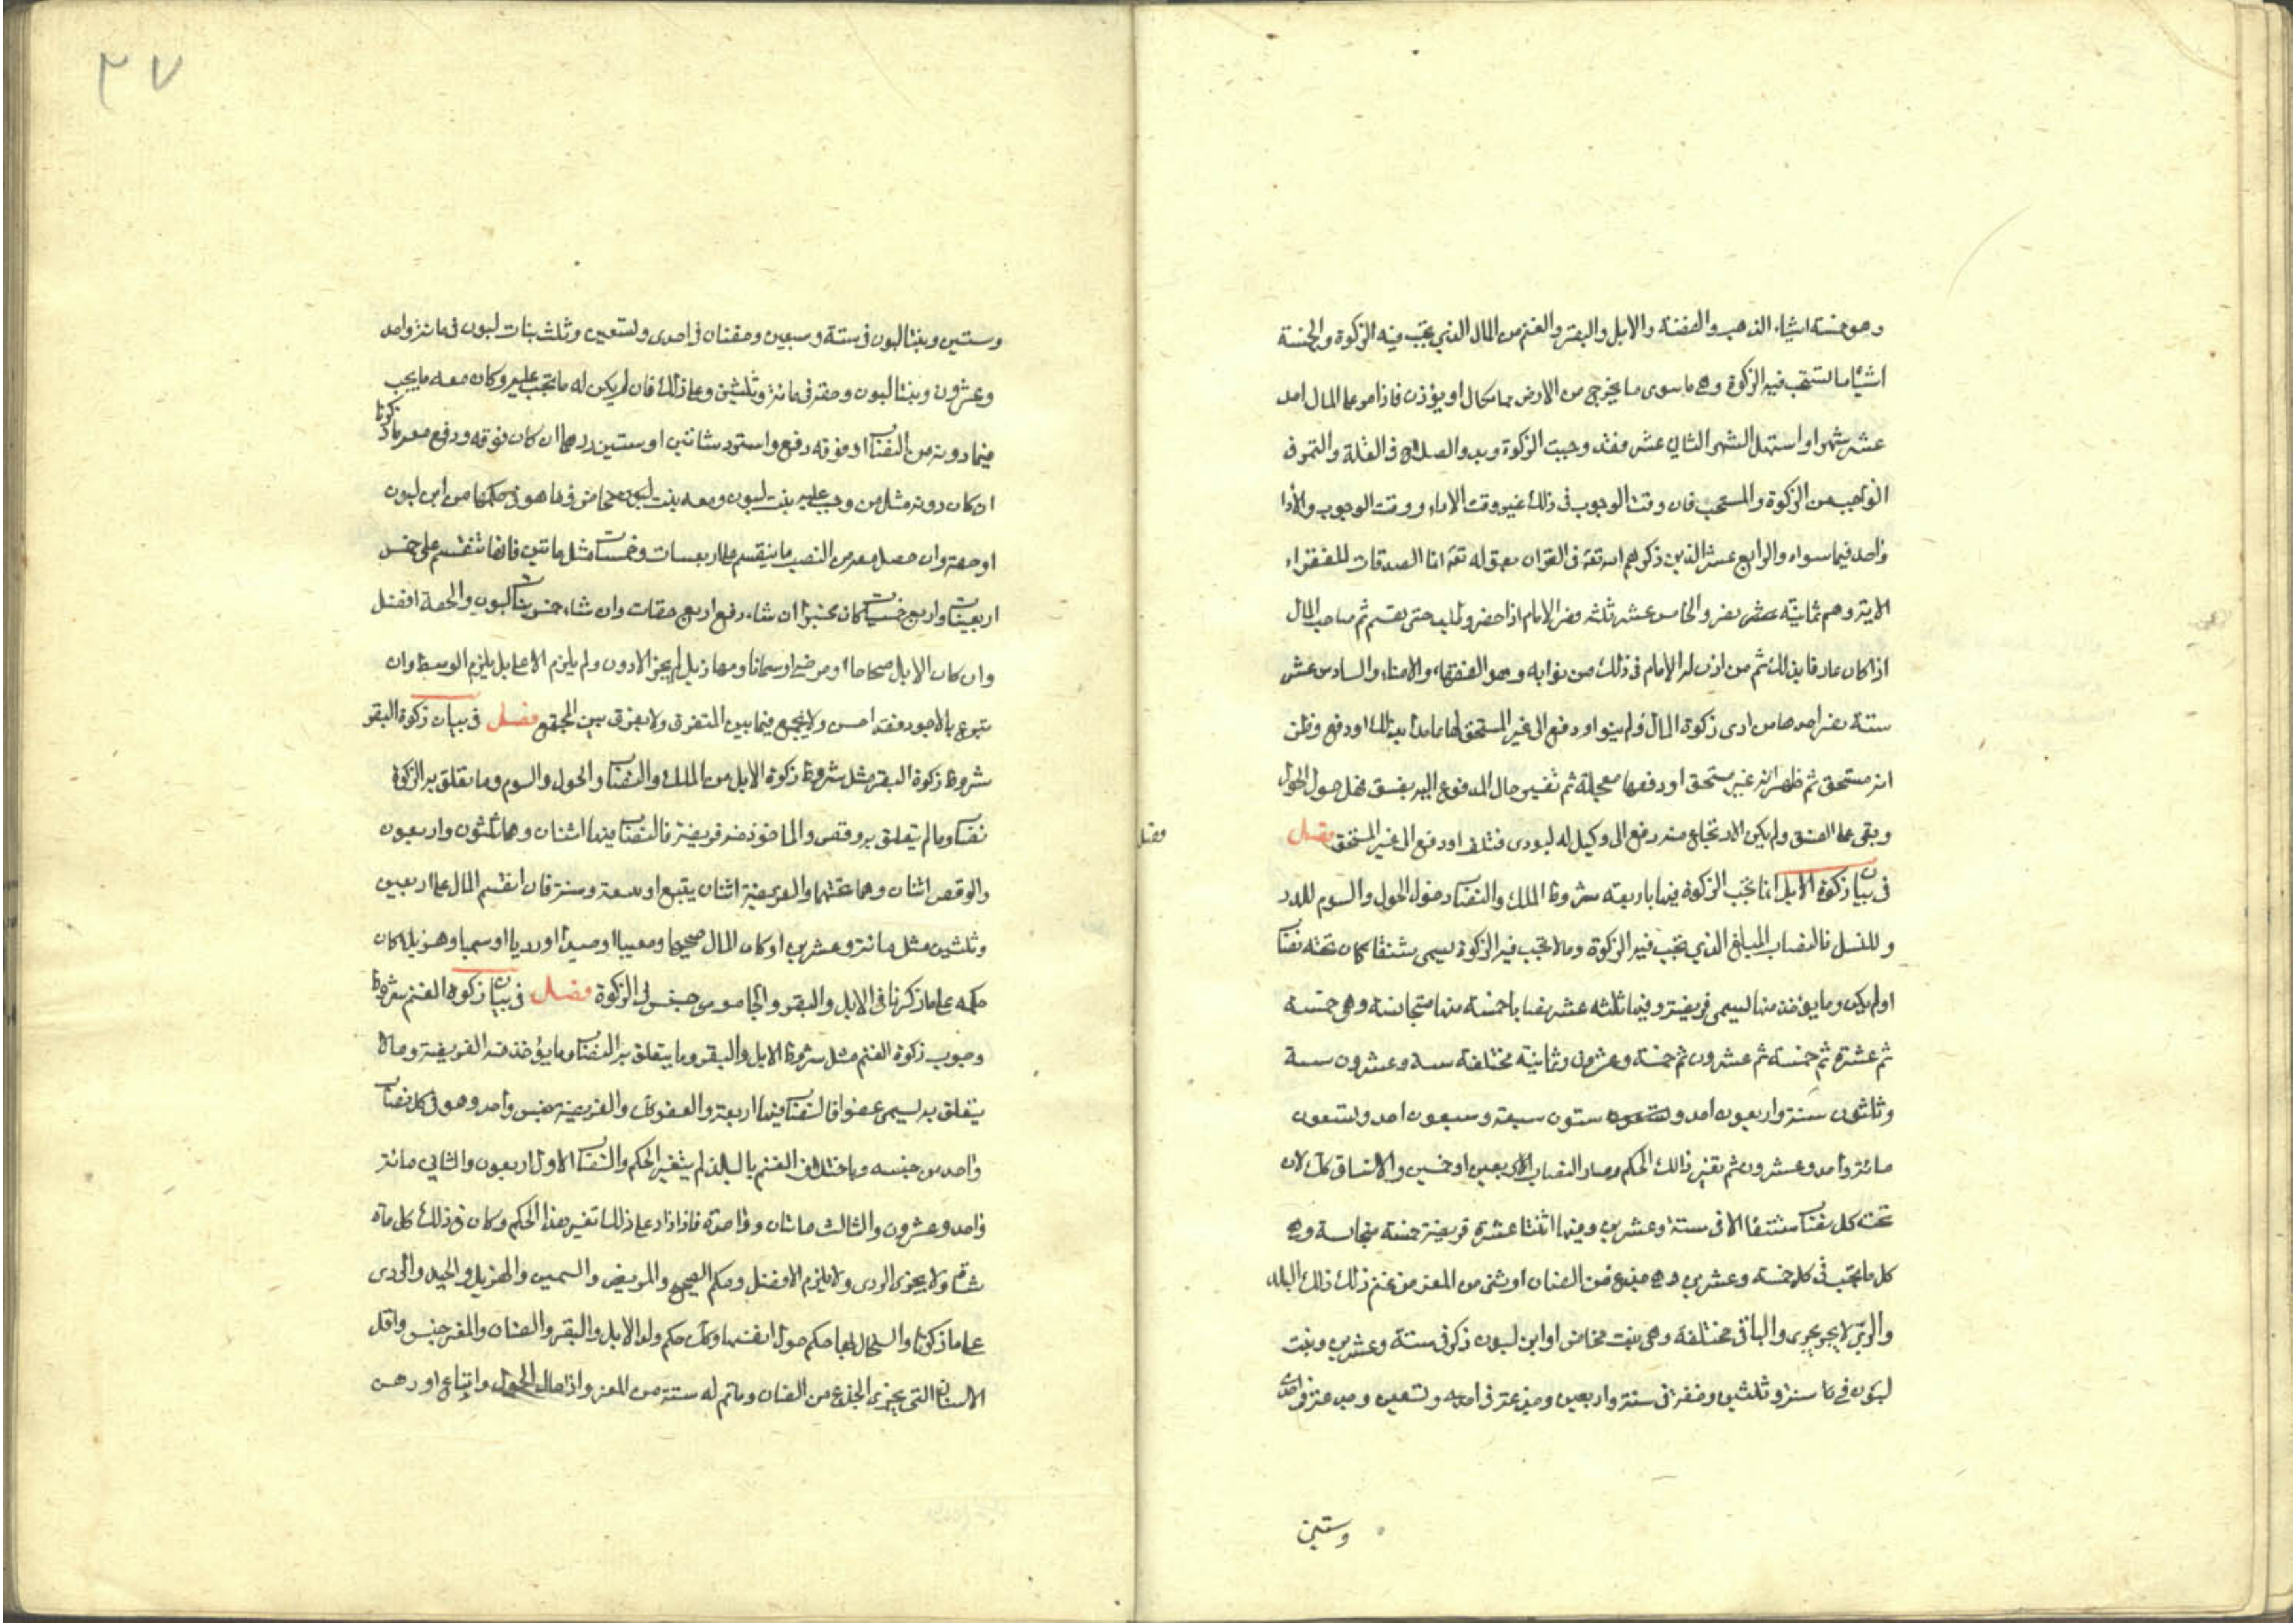 وهو خمسة اشياء الذهب والفضة والابل والبقر والغنم من المال الذي تجب فيه الزكوة والخمسة
اشياء ما تستحب فيه الزكوة وهي ما سوى ما يخرج من الارض مما يكال او يوزن فاذا مر على المال احد
عشر شهرا واستهل الشهر الثاني عشر فقد وجبت الزكوة وبدو الصلاح في الغلة والتمر في
الواجب من الزكوة والمستحب فان وقت الوجوب في ذلك غير وقت الاداء ووقت الوجوب والأدا
واحد فيما سواه والرابع عشر الذين ذكرهم الله تعه في القران بقوله تعه انما الصدقات للفقراء
الاية وهم ثمانية نفر والخامس عشر ثلثة نفر الامام اذا حضر وطلب حتى يقسم ثم صاحب المال
اذا كان عارفا بذلك ثم من اذن له الامام في ذلك من نوابه وهو الفقهاء والامناء والسادس عشر
ستة نفر احدها من ادى زكوة المال ولم ينو او دفع الى غير المستحق لها عامدا بذلك او دفع وظن
انه مستحق ثم ظهر انه غير مستحق او دفعها معجلة ثم تغير حال المدفوع اليه بفسق قبل حول الحول
وبقي على الفسق ولم يكن الارتجاع منه دفع الى وكيل له ليودى فتلف او دفع الى غير المستحق فصل
في بيان زكوة الابل انما تجب الزكوة فيها باربعة شروط الملك والنصاب وحول الحول والسوم للدر
وللنسل فالنصاب المبلغ الذي تجب فيه الزكوة وما لا تجب فيه الزكوة يسمى شنقا كان تحته نصاب
او لم يكن وما يؤخذ منها يسمى فريضة وفيها ثلثة عشر نصابا خمسة منها متجانسة وهي خمسة
ثم عشرة ثم خمسة ثم عشرون ثم خمسة وعشرون وثمانية مختلفة ستة وعشرون ستة
وثلثون ستة واربعون احد وستون ستة وسبعون احد وتسعون
مائة واحد وعشرون ثم تغير ذالك الحكم وصار النصاب الاربعين او خمسين والاشناق كك لان
تحت كل نصاب شنقا الا في ستة وعشرين وفيها اثنتا عشرة فريضة خمسة متجانسة وهي
كل ما يجب في كل خمسة وعشرين وهي جذع من الضان او ثنى من المعز من غنم ذلك ذلك البلد
والربي لا يجزي والباقي مختلفة وهي بنت مخاض او ابن لبون ذكر في ستة وعشرين وبنت
لبون في ستة وثلثين وحقة في ستة واربعين وجذعة في احد وتسعين
وستين
فصل
٣٧
وستين وبنتا لبون في ستة وسبعين وحقتان في احدى وتسعين وثلث بنات لبون في مائة واحد
وعشرون وبنتا لبون وحقة في مائة وثلثين وعلى ذلك فان لم يكن له ما تجب عليه وكان معه ما يجب
فيما دونه من النصاب او فوقه دفع واسترد شاتين او عشرين درهما ان كان فوقه ودفع معه ما ذكرنا
ان كان دونه مثل من وجب عليه بنت لبون ومعه بنت مخاض او ما هو في حكمها من ابن لبون
او حقة وان حصل معه من النصب ما ينقسم على اربعينات وخمسينات مثل مائتين فانها تنقسم على خمس
اربعينات واربع خمسينات كان مخيرا ان شاء دفع اربع حقات وان شاء خمس بنات لبون والحقة افضل
وان كان الابل صحاحا او مرضى او سمانا ومهازيل لم يجز الادون ولم يلزم الاعلى بل يلزم الوسط وان
تبرع بالاجود فقد احسن ولا يجمع فيما بين المتفرق ولا يفرق بين المجتمع فصل في بيان زكوة البقر
شروط زكوة البقر مثل شروط زكوة الابل من الملك والنصاب والحول والسوم وما يتعلق به الزكوة
نصاب وما لم يتعلق به وقص والماخوذ منه فريضة فالنصاب فيها اثنان وهما ثلثون واربعون
والوقص اثنان وهما تحتهما والفريضة اثنان تبيع او تبيعة وسنة فان انقسم المال على اربعين
وثلثين مثل مائة وعشرين او كان المال صحيحا ومعيبا او جيدا او رديا او سمينا وهزيلا كان
حكمه على ما ذكرنا في الابل والبقر والجاموس جنس في الزكوة فصل في بيان زكوة الغنم شروط
وجوب زكوة الغنم مثل شروط الابل والبقر وما يتعلق به النصاب وما يؤخذ منه الفريضة وما لا
يتعلق به يسمى عفوا فالنصاب فيها اربعة والعفو كك والفريضة جنس واحد وهو في كل نصاب
واحد من جنسه وباختلاف الغنم بالبلد لم يتغير الحكم والنصاب الاول اربعون والثاني مائة
واحد وعشرون والثالث مائتان وواحدة فاذا زاد على ذلك تغير هذا الحكم وكان في ذلك كل مائة
شاة ولا يجزى الردى ولا يلزم الافضل وحكم الصحيح والمريض والسمين والهزيل والجيد والردى
على ما ذكرنا والسخال لها حكم حول انفسها وكك حكم ولد الابل والبقر والضان والمعز جنس واقل
الاسنان التي يجزى الجذع من الضان وما تم له ستة من المعز واذا حال الحول وابتاع او رهن